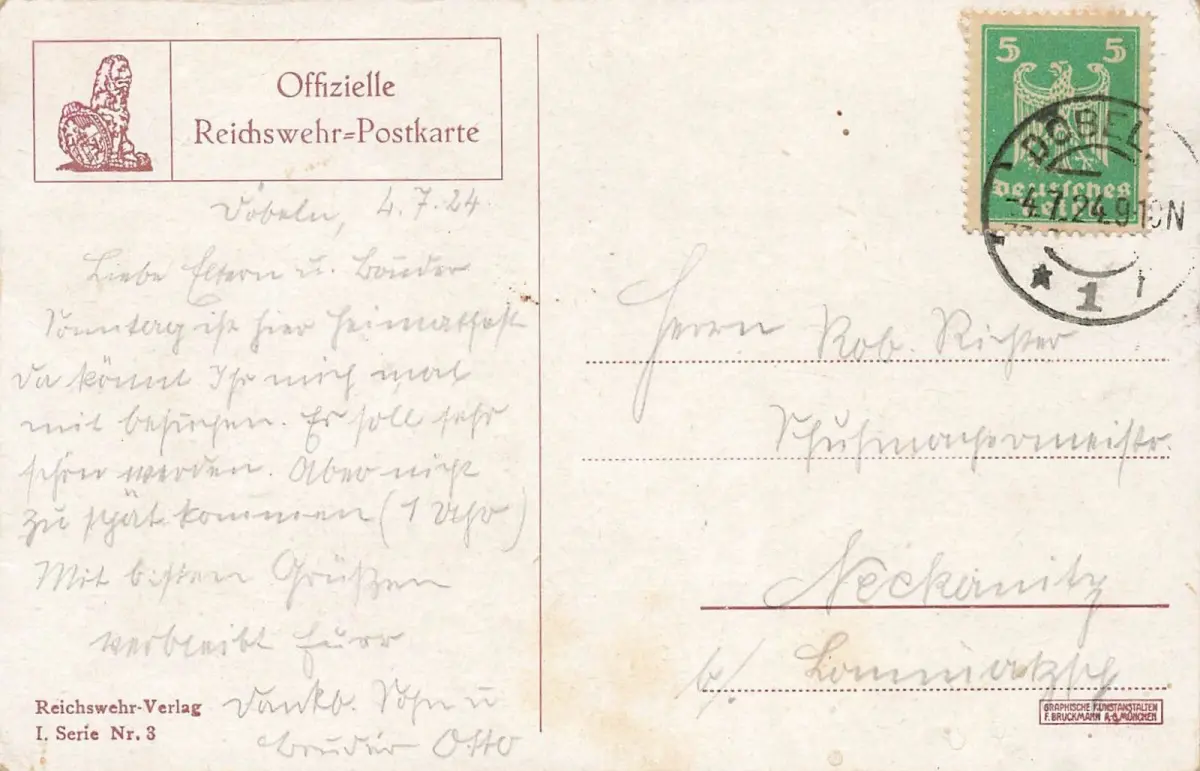 Offizielle
Reichswehr=Postkarte
Döbeln, 4.7.24.
Liebe Eltern u. Bruder
Sonntag ist hier Heimatfest
Da könnt Ihr mich mal
mit besuchen. Es soll sehr
schön werden. Aber nicht
zu spät kommen (1 Uhr)
Mit besten Grüßen
verbleibt Euer
Dankb. Sohn u
Bruder Otto
Reichswehr-Verlag
I. Serie Nr. 3
5 5
Deutsches
Reich
DÖBELN
-4.7.24.9-10N
* 1
Herrn Rob. Richter
Schuhmachermeistr.
Neckanitz
b/ Lommatzsch
GRAPHISCHE KUNSTANSTALTEN
F. BRUCKMANN A.G. MÜNCHEN